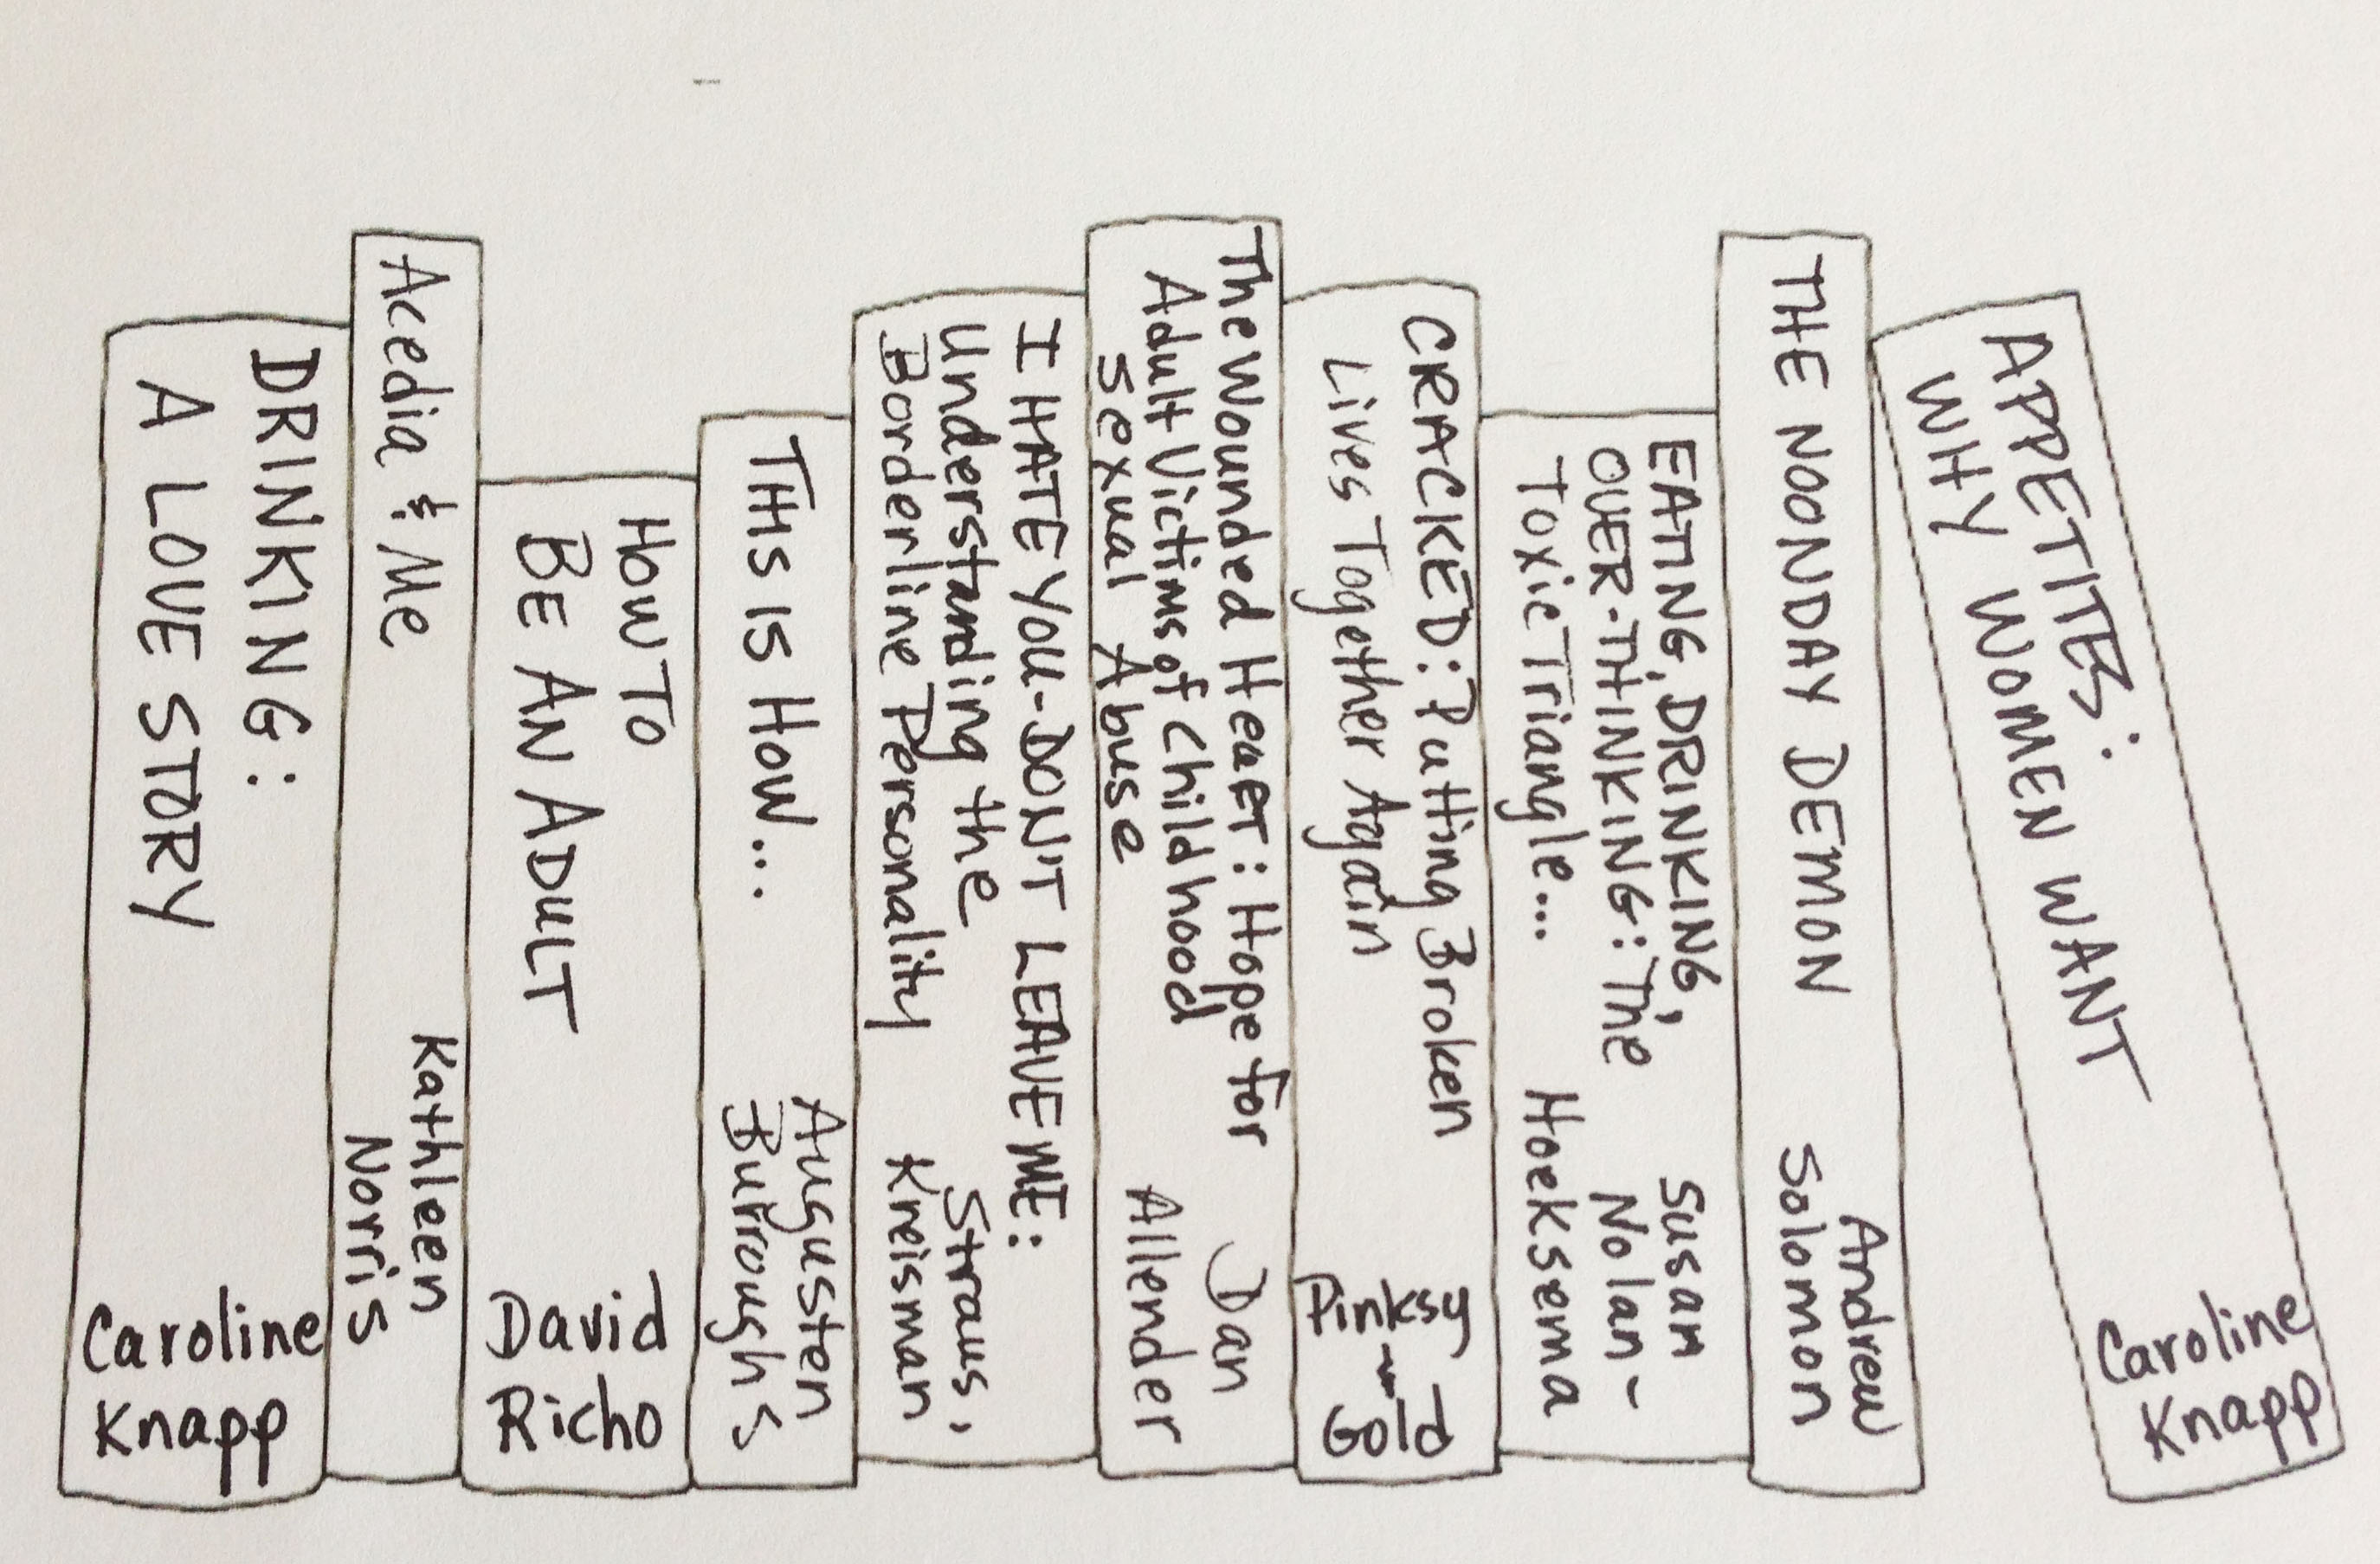 DRINKING:
A LOVE STORY
Caroline
Knapp
Acedia & Me
Kathleen
Norris
HOW TO
BE AN ADULT
David
Richo
THIS IS HOW...
Augusten
Burroughs
I HATE YOU-DON'T LEAVE ME:
Understanding the
Borderline Personality
Straus,
Kreisman
The Wounded Heart: Hope for
Adult Victims of Childhood
Sexual Abuse
Dan
Allender
CRACKED: Putting Broken
Lives Together Again
Pinksy
Gold
EATING, DRINKING,
OVER-THINKING: The
Toxic Triangle...
Susan
Nolan-
Hoeksema
THE NOONDAY DEMON
Andrew
Solomon
APPETITES:
WHY WOMEN WANT
Caroline
Knapp